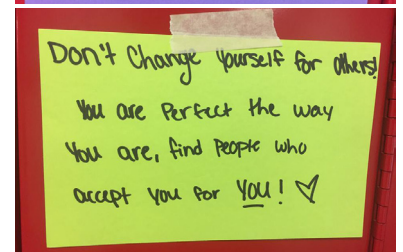 Don't Change Yourself for others!
You are Perfect the way
You are, find People who
accept you for YOU! ♡